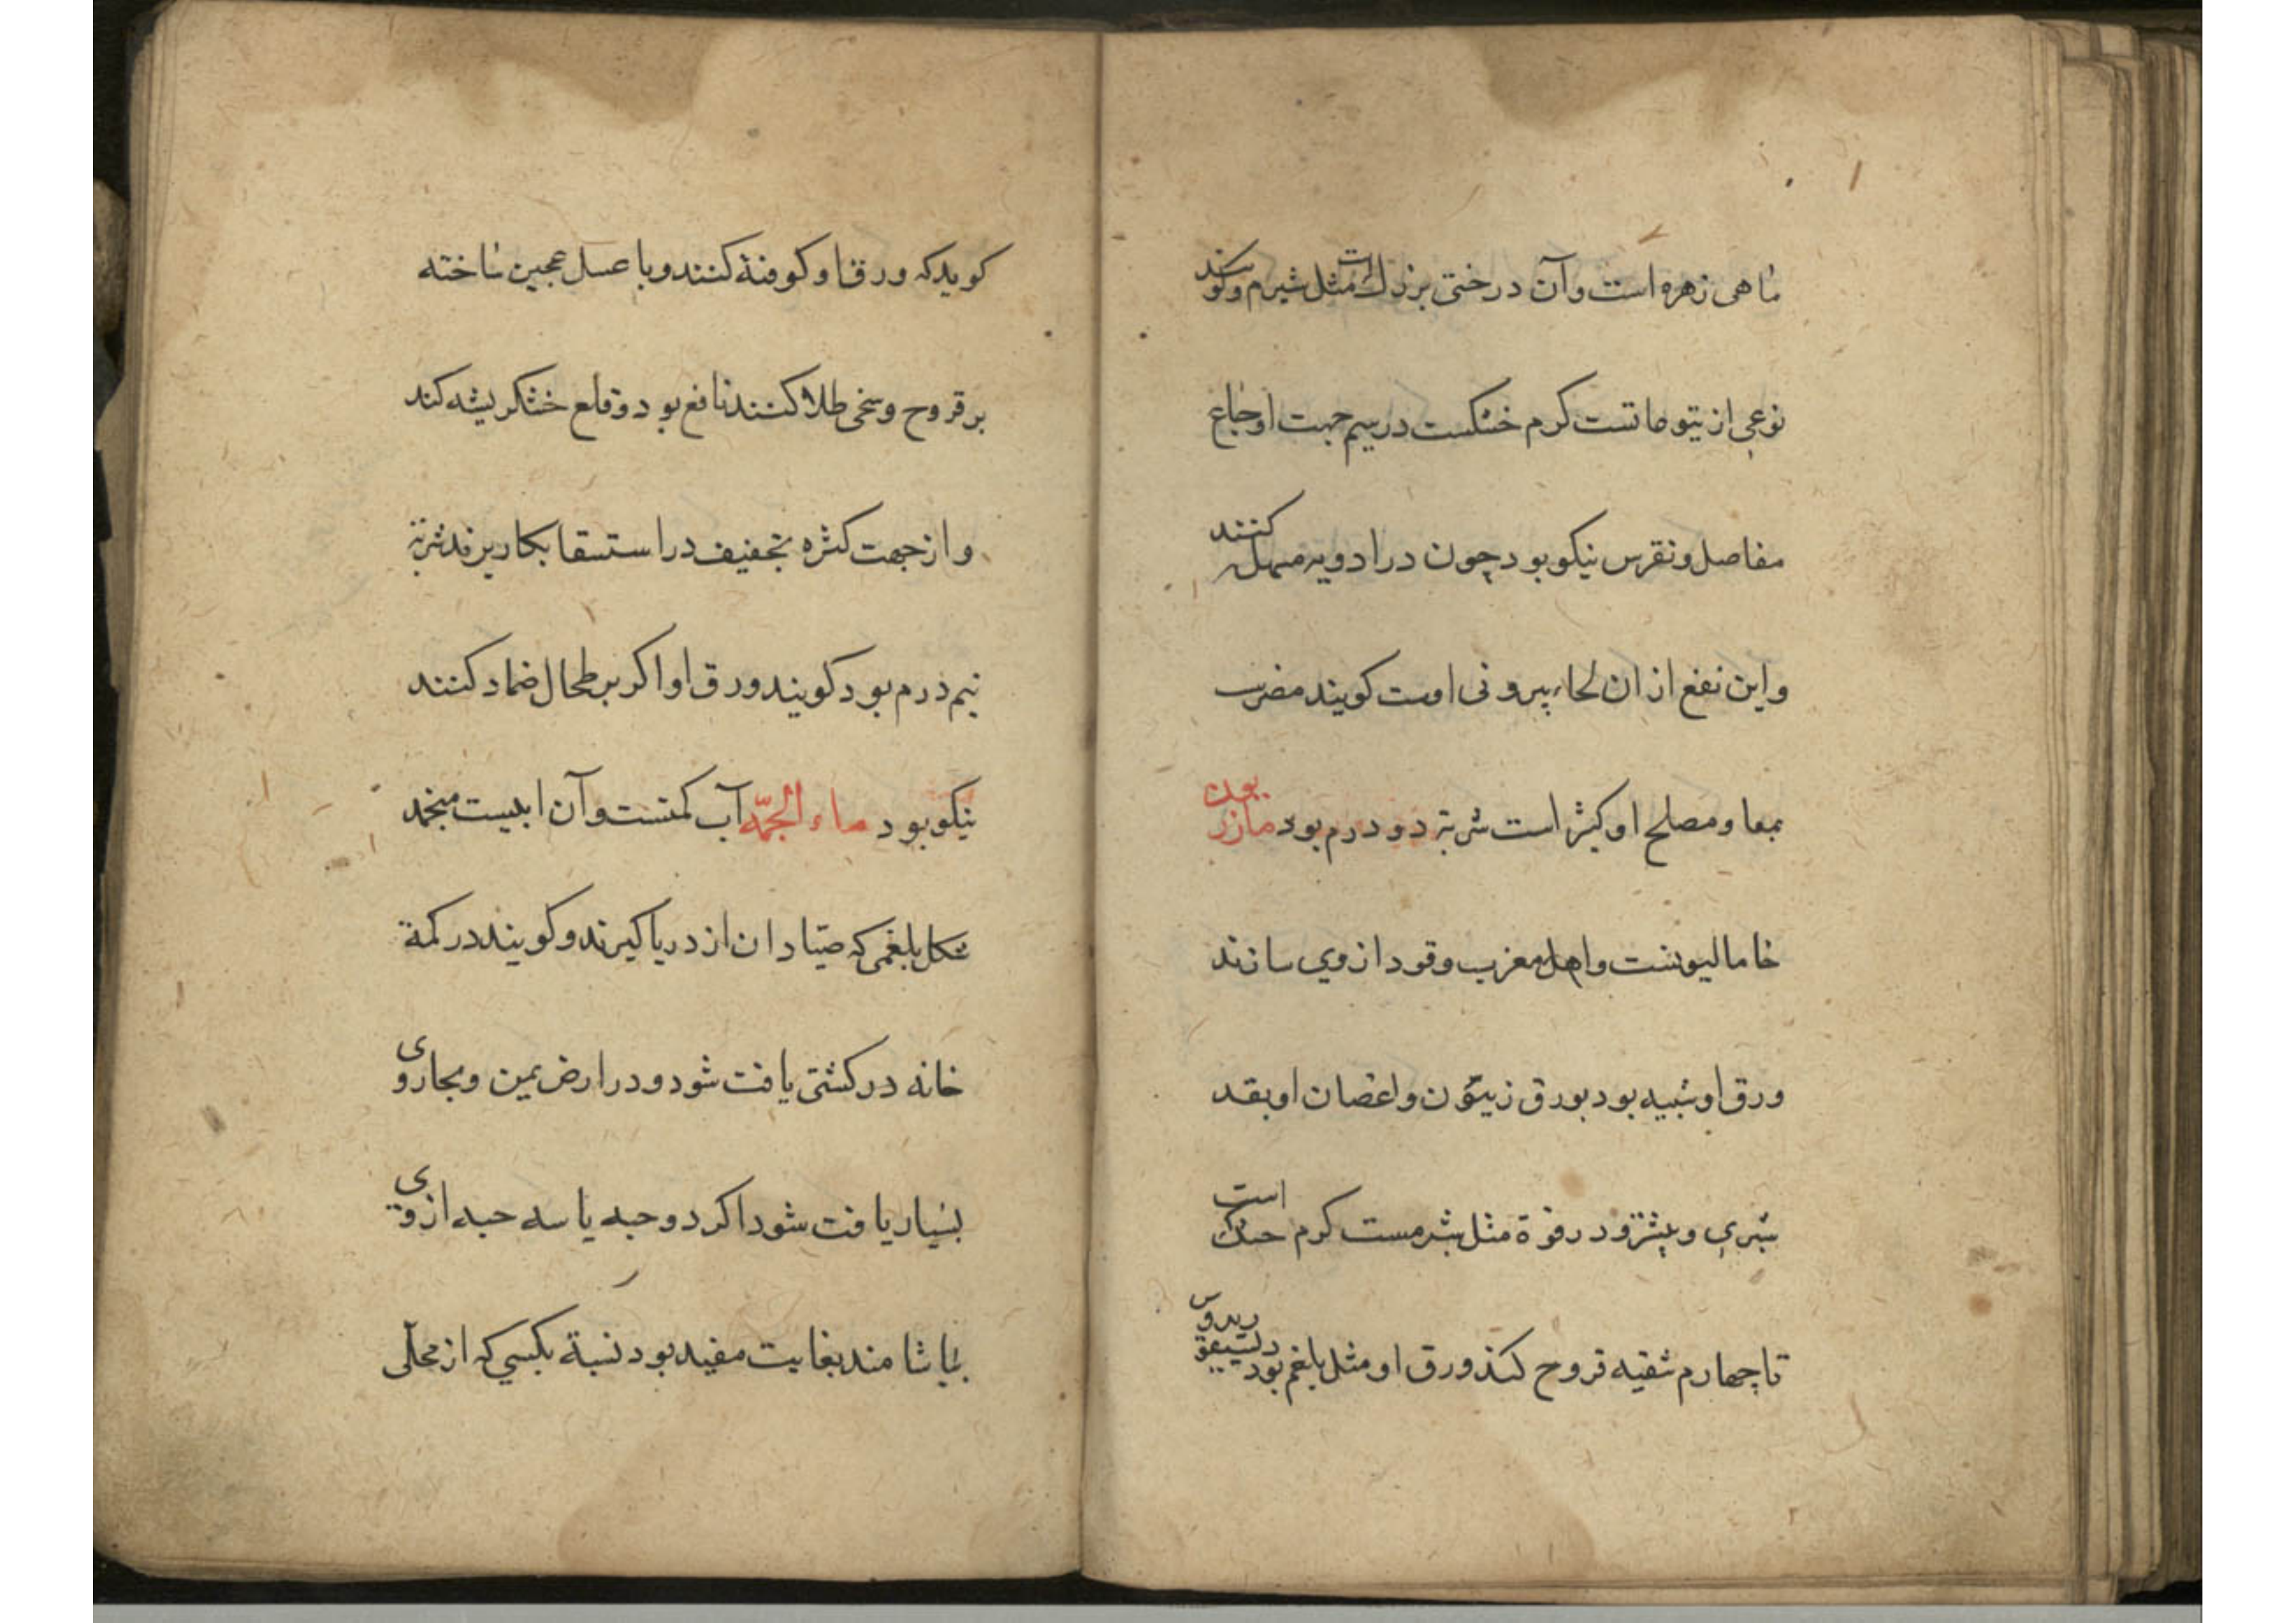 ماهی زهره است وآن درختی بزرك است مثل شبرم وکویند
نوعی از یتوماتست کرم خشکست درسیم جهت اوجاع
مفاصل ونقرس نیکو بود چون در ادویه مسهل کنند
واین نفع از ان لحاء بیرونی اوست کویند مضرست
بمعا ومصلح او کثیرا است شربة دو درم بود مازریون
خامالیونست واهل مغرب وقود ازوي سازند
ورق او شبیه بود بورق زیتون واغصان او بقد
شبري وبیشتر ودر قوة مثل شبرمست کرم خشك است
تا چهارم تنقیه قروح کند ورق او مثل بلغم بود
کوید که ورق او کوفته کنند وبا عسل عجین ساخته
بر قروح وسخی طلا کنند نافع بود وقلع خشکریشه کند
واز جهت کثره تجفیف در استسقا بکار برند شربة
نیم درم بود کویند ورق او اکر بر طحال ضماد کنند
نیکو بود ماء الجمّه آب کمتست وآن ابیست منجمد
شکل بلغمی که صیّادان از دریا کیرند وکویند در کمة
خانه در کشتی یافت شود ودر ارض یمن ومجاروی
بسیار یافت شود اکر دوحبه یا سه حبه ازوی
بیاشامند بغایت مفید بود نسبة بکسي که از محلّی